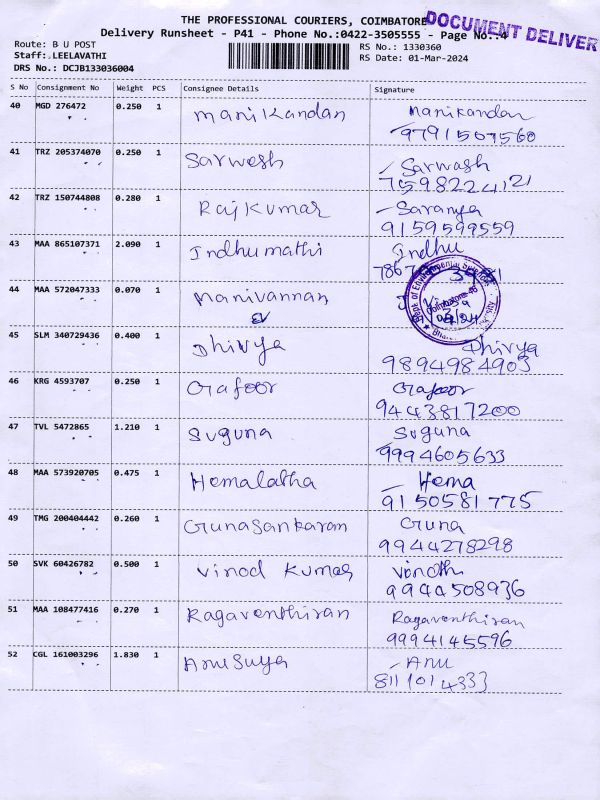 THE PROFESSIONAL COURIERS, COIMBATORE
DOCUMENT DELIVER
Delivery Runsheet - P41 - Phone No.:0422-3505555 - Page No.:4
Route: B U POST
RS No.: 1330360
Staff: LEELAVATHI
RS Date: 01-Mar-2024
DRS No.: DCJB133036004
S No Consignment No Weight PCS Consignee Details Signature
40 MGD 276472 0.250 1 Manikandan Manikandan
9791507560
41 TRZ 205374070 0.250 1 Sarwesh Sarwash
7598224121
42 TRZ 150744808 0.280 1 Rajkumar Saranya
9159599559
43 MAA 865107371 2.090 1 Indhumathi Indhu
44 MAA 572047333 0.070 1 Manivannan
Dept of Environmental Sciences
Coimbatore-46
45 SLM 340729436 0.400 1 Dhivya Dhivya
9894984903
46 KRG 4593707 0.250 1 Gafoor Gafoor
9443817200
47 TVL 5472865 1.210 1 Suguna Suguna
9994605633
48 MAA 573920705 0.475 1 Hemalatha Hema
9150581775
49 TMG 200404442 0.260 1 Gunasankaram Guna
9944278298
50 SVK 60426782 0.500 1 Vinod Kumar Vinoth
9944508936
51 MAA 108477416 0.270 1 Ragaventhiran Ragaventhiran
9994145596
52 CGL 161003296 1.830 1 Anusuya Anu
8111014333